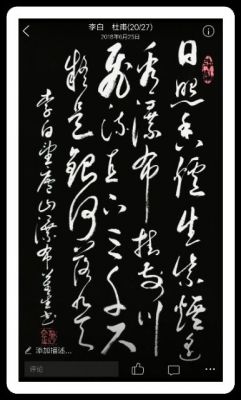 李白 杜甫(20/27)
2018年6月25日
日照香炉生紫烟遥
看瀑布挂前川
飞流直下三千尺
疑是银河落九天
李白望庐山瀑布
添加描述...
评论